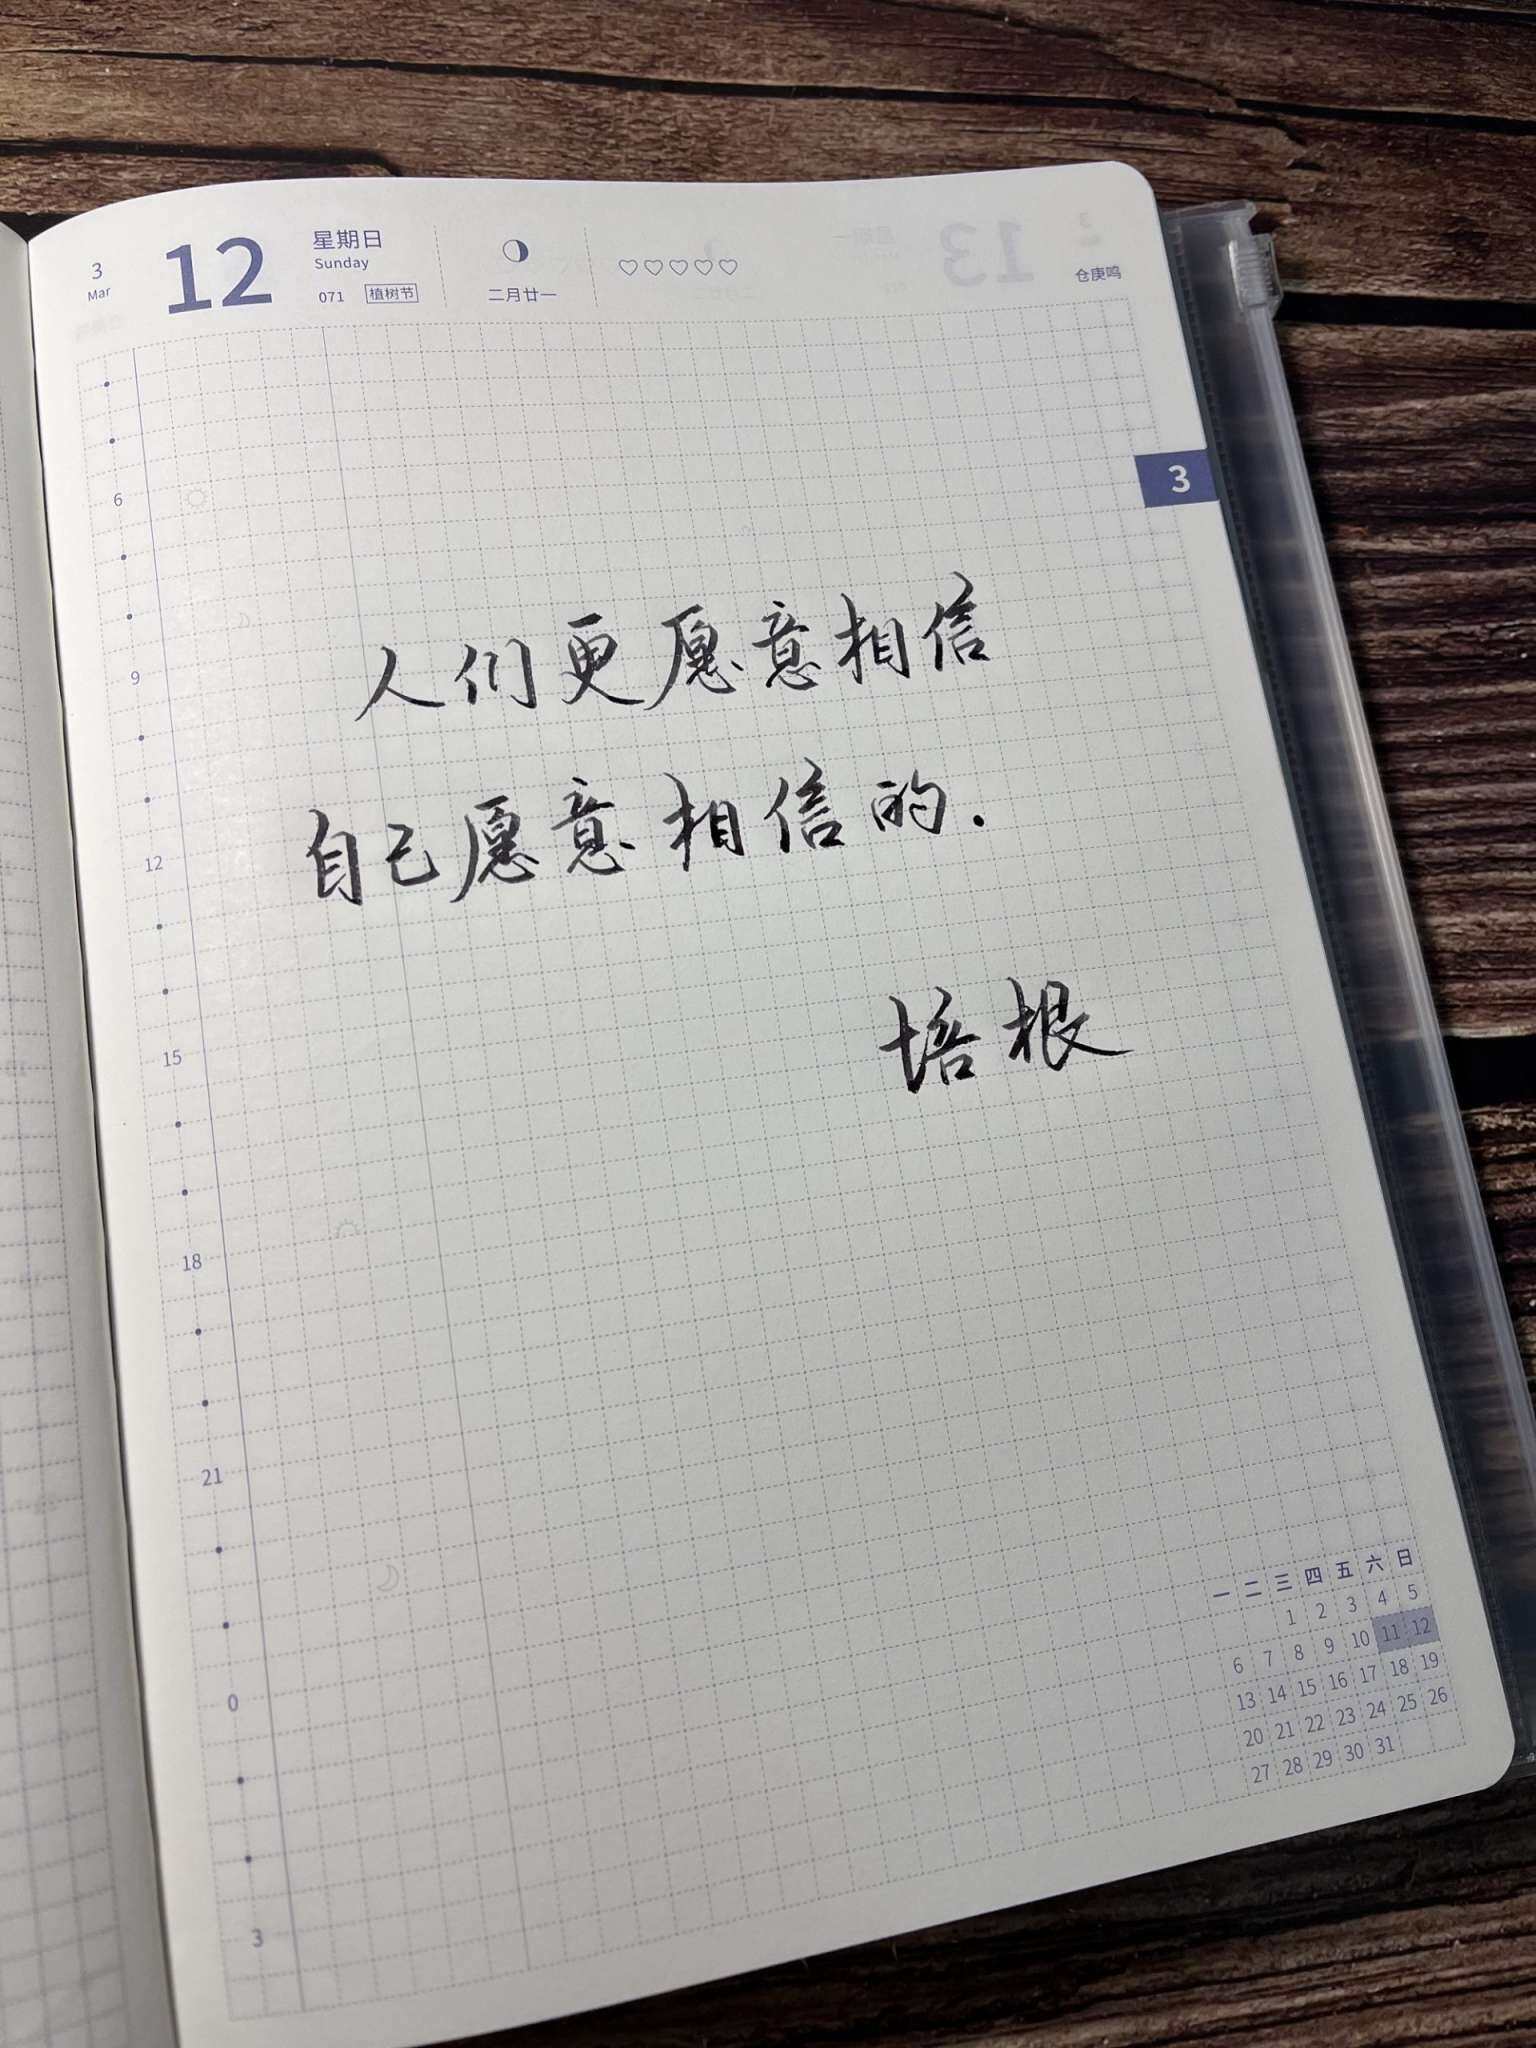 3
Mar
12
星期日
Sunday
071 植树节
二月廿一
仓庚鸣
3
6
9
12
15
18
21
0
3
人们更愿意相信
自己愿意相信的.
培根
一 二 三 四 五 六 日
1 2 3 4 5
6 7 8 9 10 11 12
13 14 15 16 17 18 19
20 21 22 23 24 25 26
27 28 29 30 31